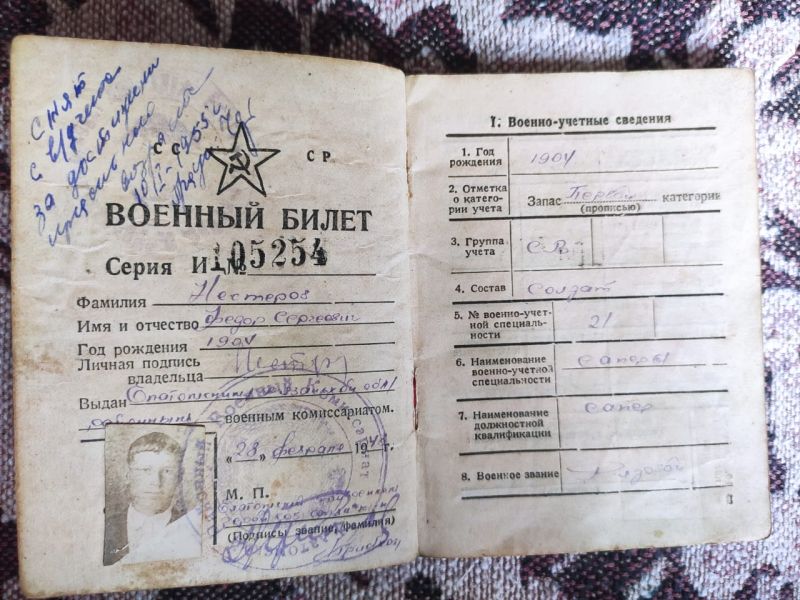 снят
с в/учета
за достижени
предельного
возраста
СС СР
ВОЕННЫЙ БИЛЕТ
Серия И № 105254
Фамилия Нестеров
Имя и отчество Федор Сергеевич
Год рождения 1904
Личная подпись
владельца
Выдан
военным комиссариатом.
„28" февраля 194 г.
М. П.
(Подпись, звание, фамилия)
1. Военно-учетные сведения
1. Год
рождения 1904
2. Отметка
о катего-
рии учета Запас Первой категории
(прописью)
3. Группа
учета
4. Состав солдат
5. № военно-учет-
ной специаль-
ности 21
6. Наименование
военно-учетной
специальности саперы
7. Наименование
должностной
квалификации сапер
8. Военное звание Рядовой